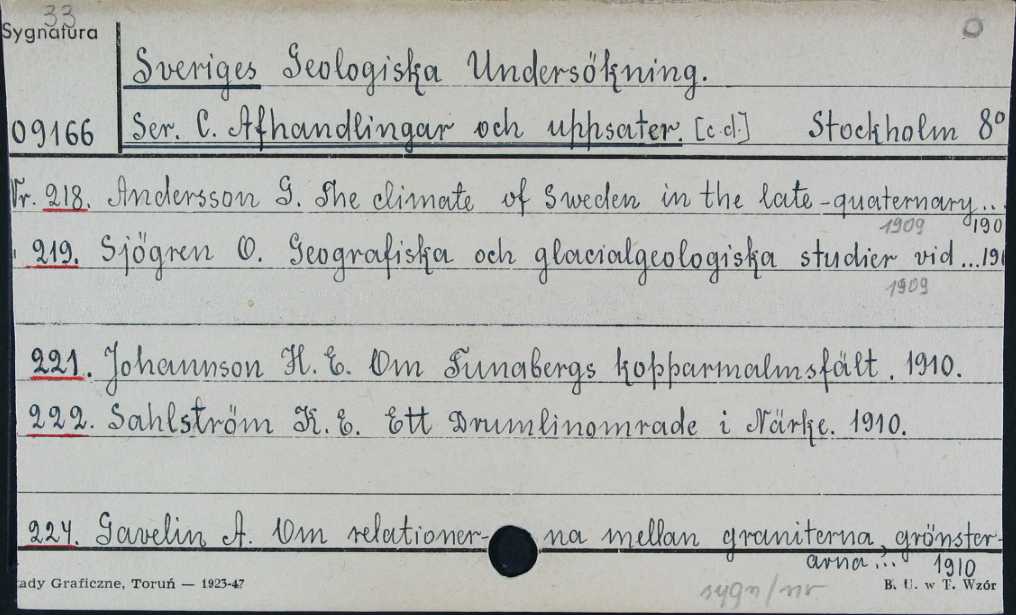 33
Sygnatura
0
Sveriges Geologiska Undersökning.
09166
Ser. C. Afhandlingar och uppsater. [c.d.] Stockholm 8°
Nr. 218. Andersson G. The climate of Sweden in the late-quaternary...
1909 190
219. Sjögren O. Geografiska och glacialgeologiska studier vid ...190
1909
221. Johannson H. E. Om Tunabergs kopparmalmsfält. 1910.
222. Sahlström K. E. Ett Drumlinomrade i Närke. 1910.
224. Gavelin A. Om relationer-na mellan graniterna, grönster-
arna... 1910
ady Graficzne, Toruń — 1923-47
sygn/nr
B. U. w T. Wzór